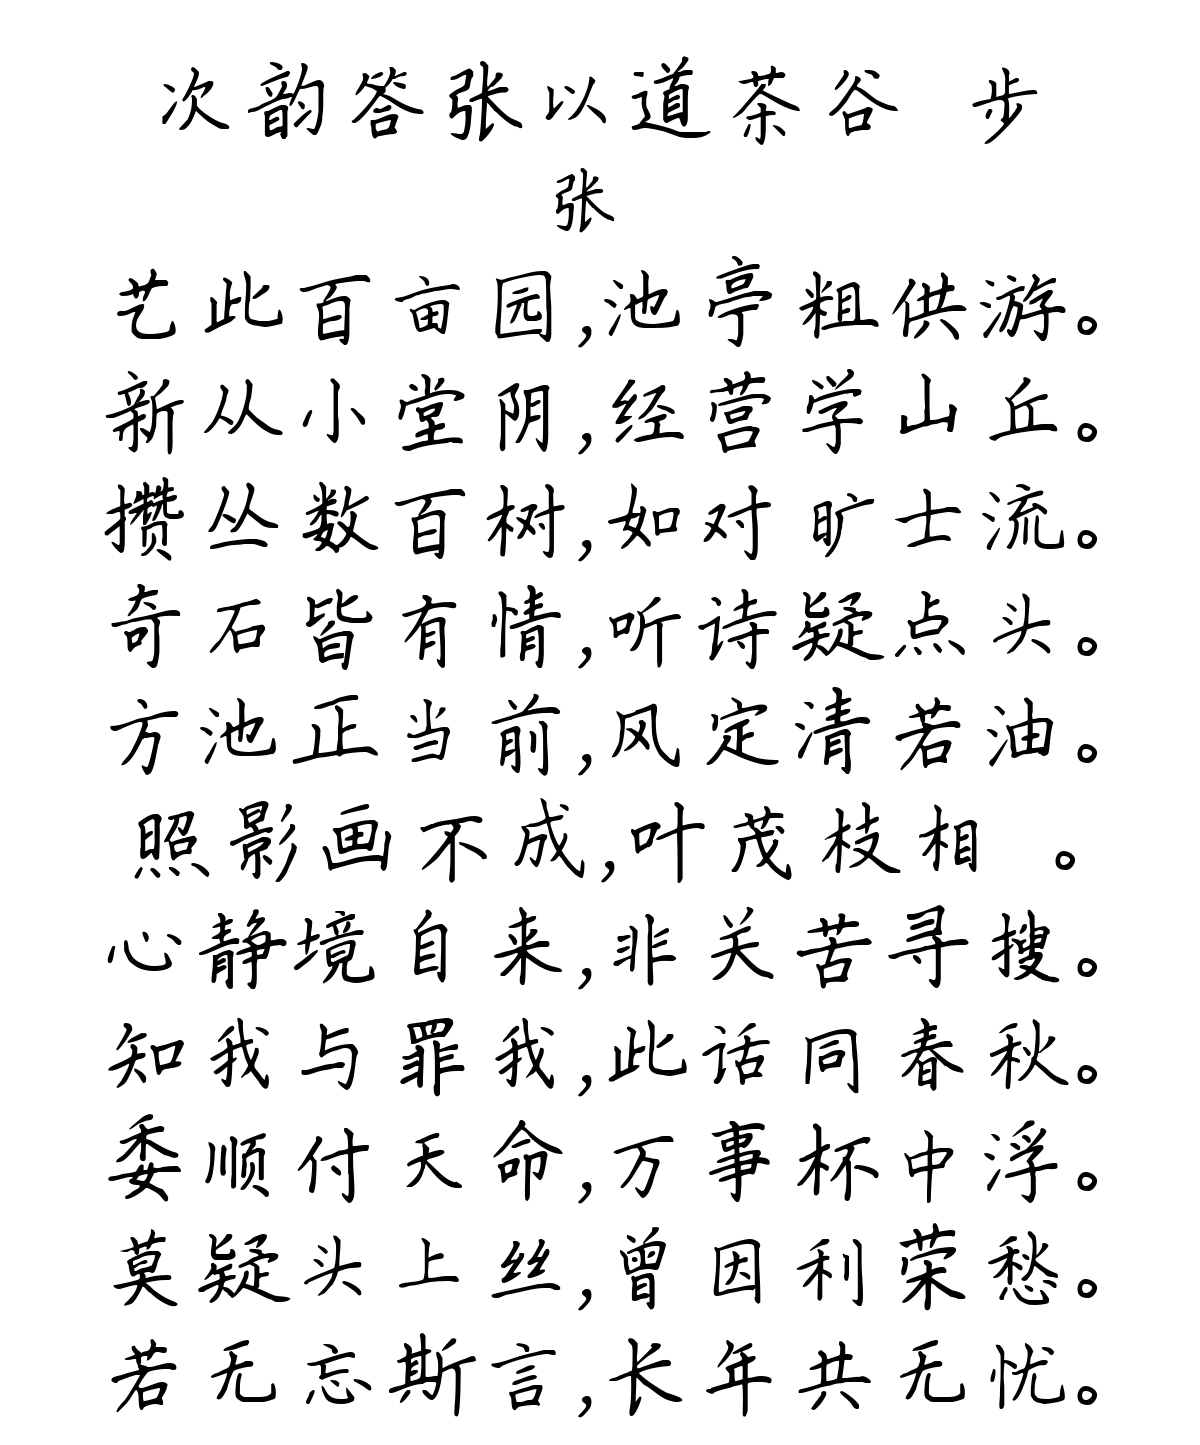 次韵答张以道茶谷 步
张
艺此百亩园,池亭粗供游。
新从小堂阴,经营学山丘。
攒丛数百树,如对旷士流。
奇石皆有情,听诗疑点头。
方池正当前,风定清若油。
照影画不成,叶茂枝相 。
心静境自来,非关苦寻搜。
知我与罪我,此话同春秋。
委顺付天命,万事杯中浮。
莫疑头上丝,曾因利荣愁。
若无忘斯言,长年共无忧。